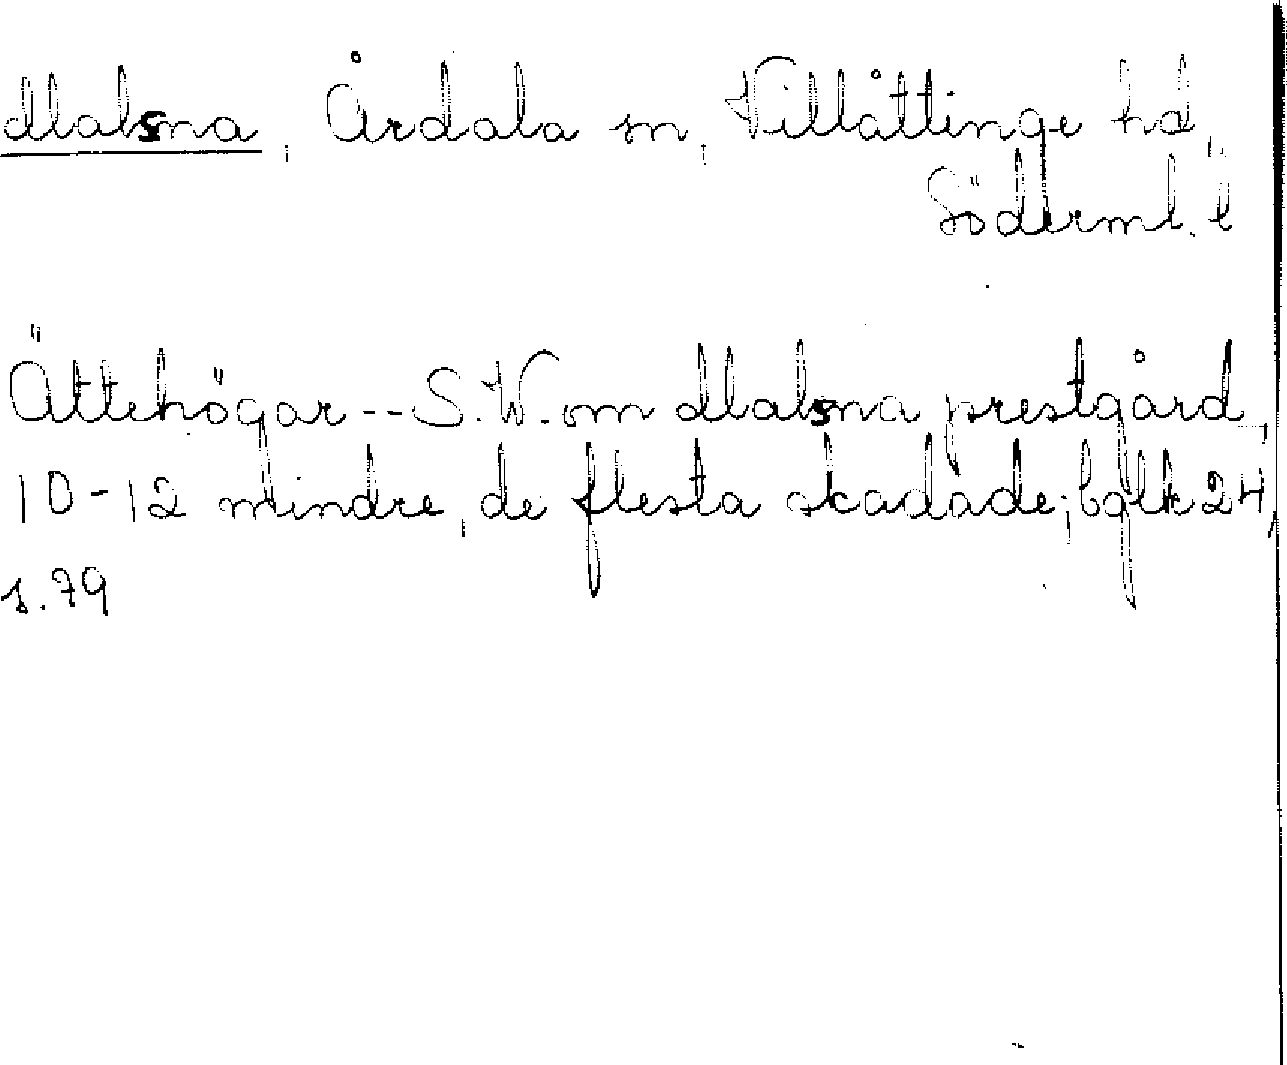 Malsna, Årdala sn, Villåttinge hd,
Söderml. l
Ättehögar -- S.W. om Malsna prestgård,
10-12 mindre, de flesta skadade; bglk 24,
s. 79